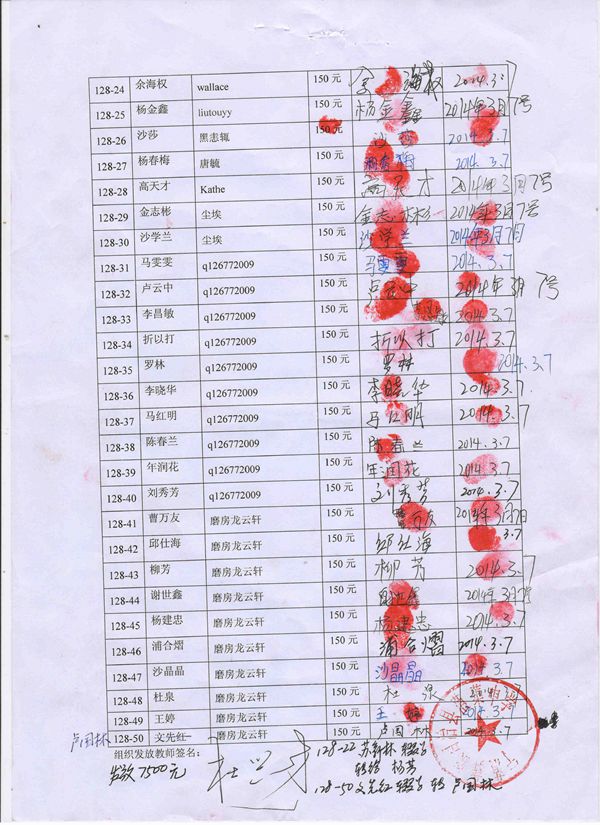 128-24 余海权 wallace 150元 余海权 2014.3.7
128-25 杨金鑫 liutouyy 150元 杨金鑫 2014年3月7号
128-26 沙莎 黑志辄 150元 沙莎 2014.3.7
128-27 杨春梅 唐毓 150元 杨春梅 2014.3.7
128-28 高天才 Kathe 150元 高天才 2014年3月7号
128-29 金志彬 尘埃 150元 金志彬 2014年3月7号
128-30 沙学兰 尘埃 150元 沙学兰 2014年3月7月
128-31 马雯雯 q126772009 150元 马雯雯 2014.3.7
128-32 卢云中 q126772009 150元 卢云中 2014年3月7号
128-33 李昌敏 q126772009 150元 2014.3.7
128-34 折以打 q126772009 150元 折以打 2014.3.7
128-35 罗林 q126772009 150元 罗林 2014.3.7
128-36 李晓华 q126772009 150元 李晓华 2014.3.7
128-37 马红明 q126772009 150元 马红明 2014.3.7
128-38 陈春兰 q126772009 150元 陈春兰 2014.3.7
128-39 年润花 q126772009 150元 年润花 2014.3.7
128-40 刘秀芳 q126772009 150元 刘秀芳 2014.3.7
128-41 曹万友 磨房龙云轩 150元 曹万友 2014年3月7日
128-42 邱仕海 磨房龙云轩 150元 邱仕海 3.7
128-43 柳芳 磨房龙云轩 150元 柳芳 2014.3.7
128-44 谢世鑫 磨房龙云轩 150元 2014年3月7号
128-45 杨建忠 磨房龙云轩 150元 杨建忠 2014.3.7
128-46 浦合熠 磨房龙云轩 150元 浦合熠 2014.3.7
128-47 沙晶晶 磨房龙云轩 150元 沙晶晶 2014.3.7
128-48 杜泉 磨房龙云轩 150元 杜泉 2014.3.7
128-49 王婷 磨房龙云轩 150元 王婷 2014.3.7
卢国林 128-50 文先红 磨房龙云轩 150元 卢国林 2014.3.7
组织发放教师签名：
发放7500元
128-22 苏 林 辍学
转给 杨芳
128-50文先红 辍学 转 卢国林